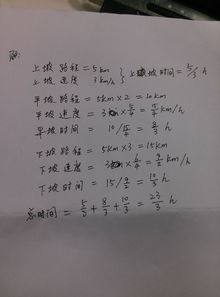 解:
上坡路程=5km
上坡速度 3km/h } 上坡时间=5/3 h
平坡路程=5km×2=10km
平坡速度=3×5/4=15/4 km/h
平坡时间=10/15/4=8/3 h
下坡路程=5km×3=15km
下坡速度=3×6/4=9/2 km/h
下坡时间=15/9/2=10/3 h
总时间=5/3+8/3+10/3=23/3 h